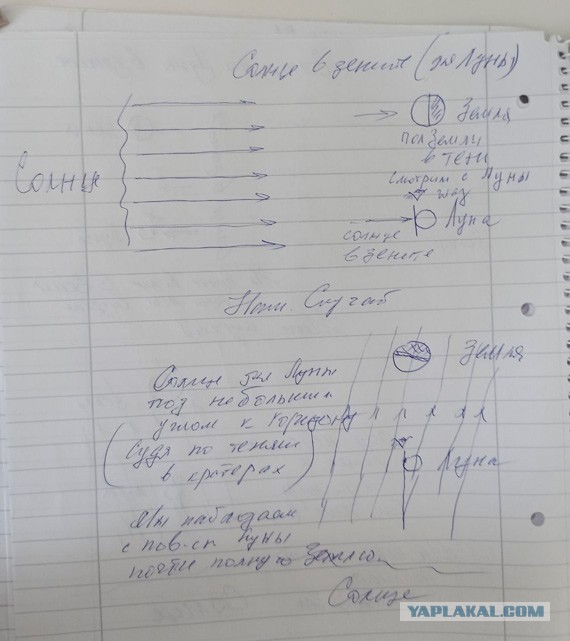 Солнце в зените (для Луны)
Солнце
Земля
пол Земли
в тени
смотрим с Луны
глаз
Луна
солнце
в зените
Случай
Земля
Солнце для Луны
под небольшим
углом к горизонту
(судя по теням
в кратерах)
Луна
Мы наблюдаем
с пов-сти Луны
почти полную Землю
Солнце
YAPLAKAL.COM